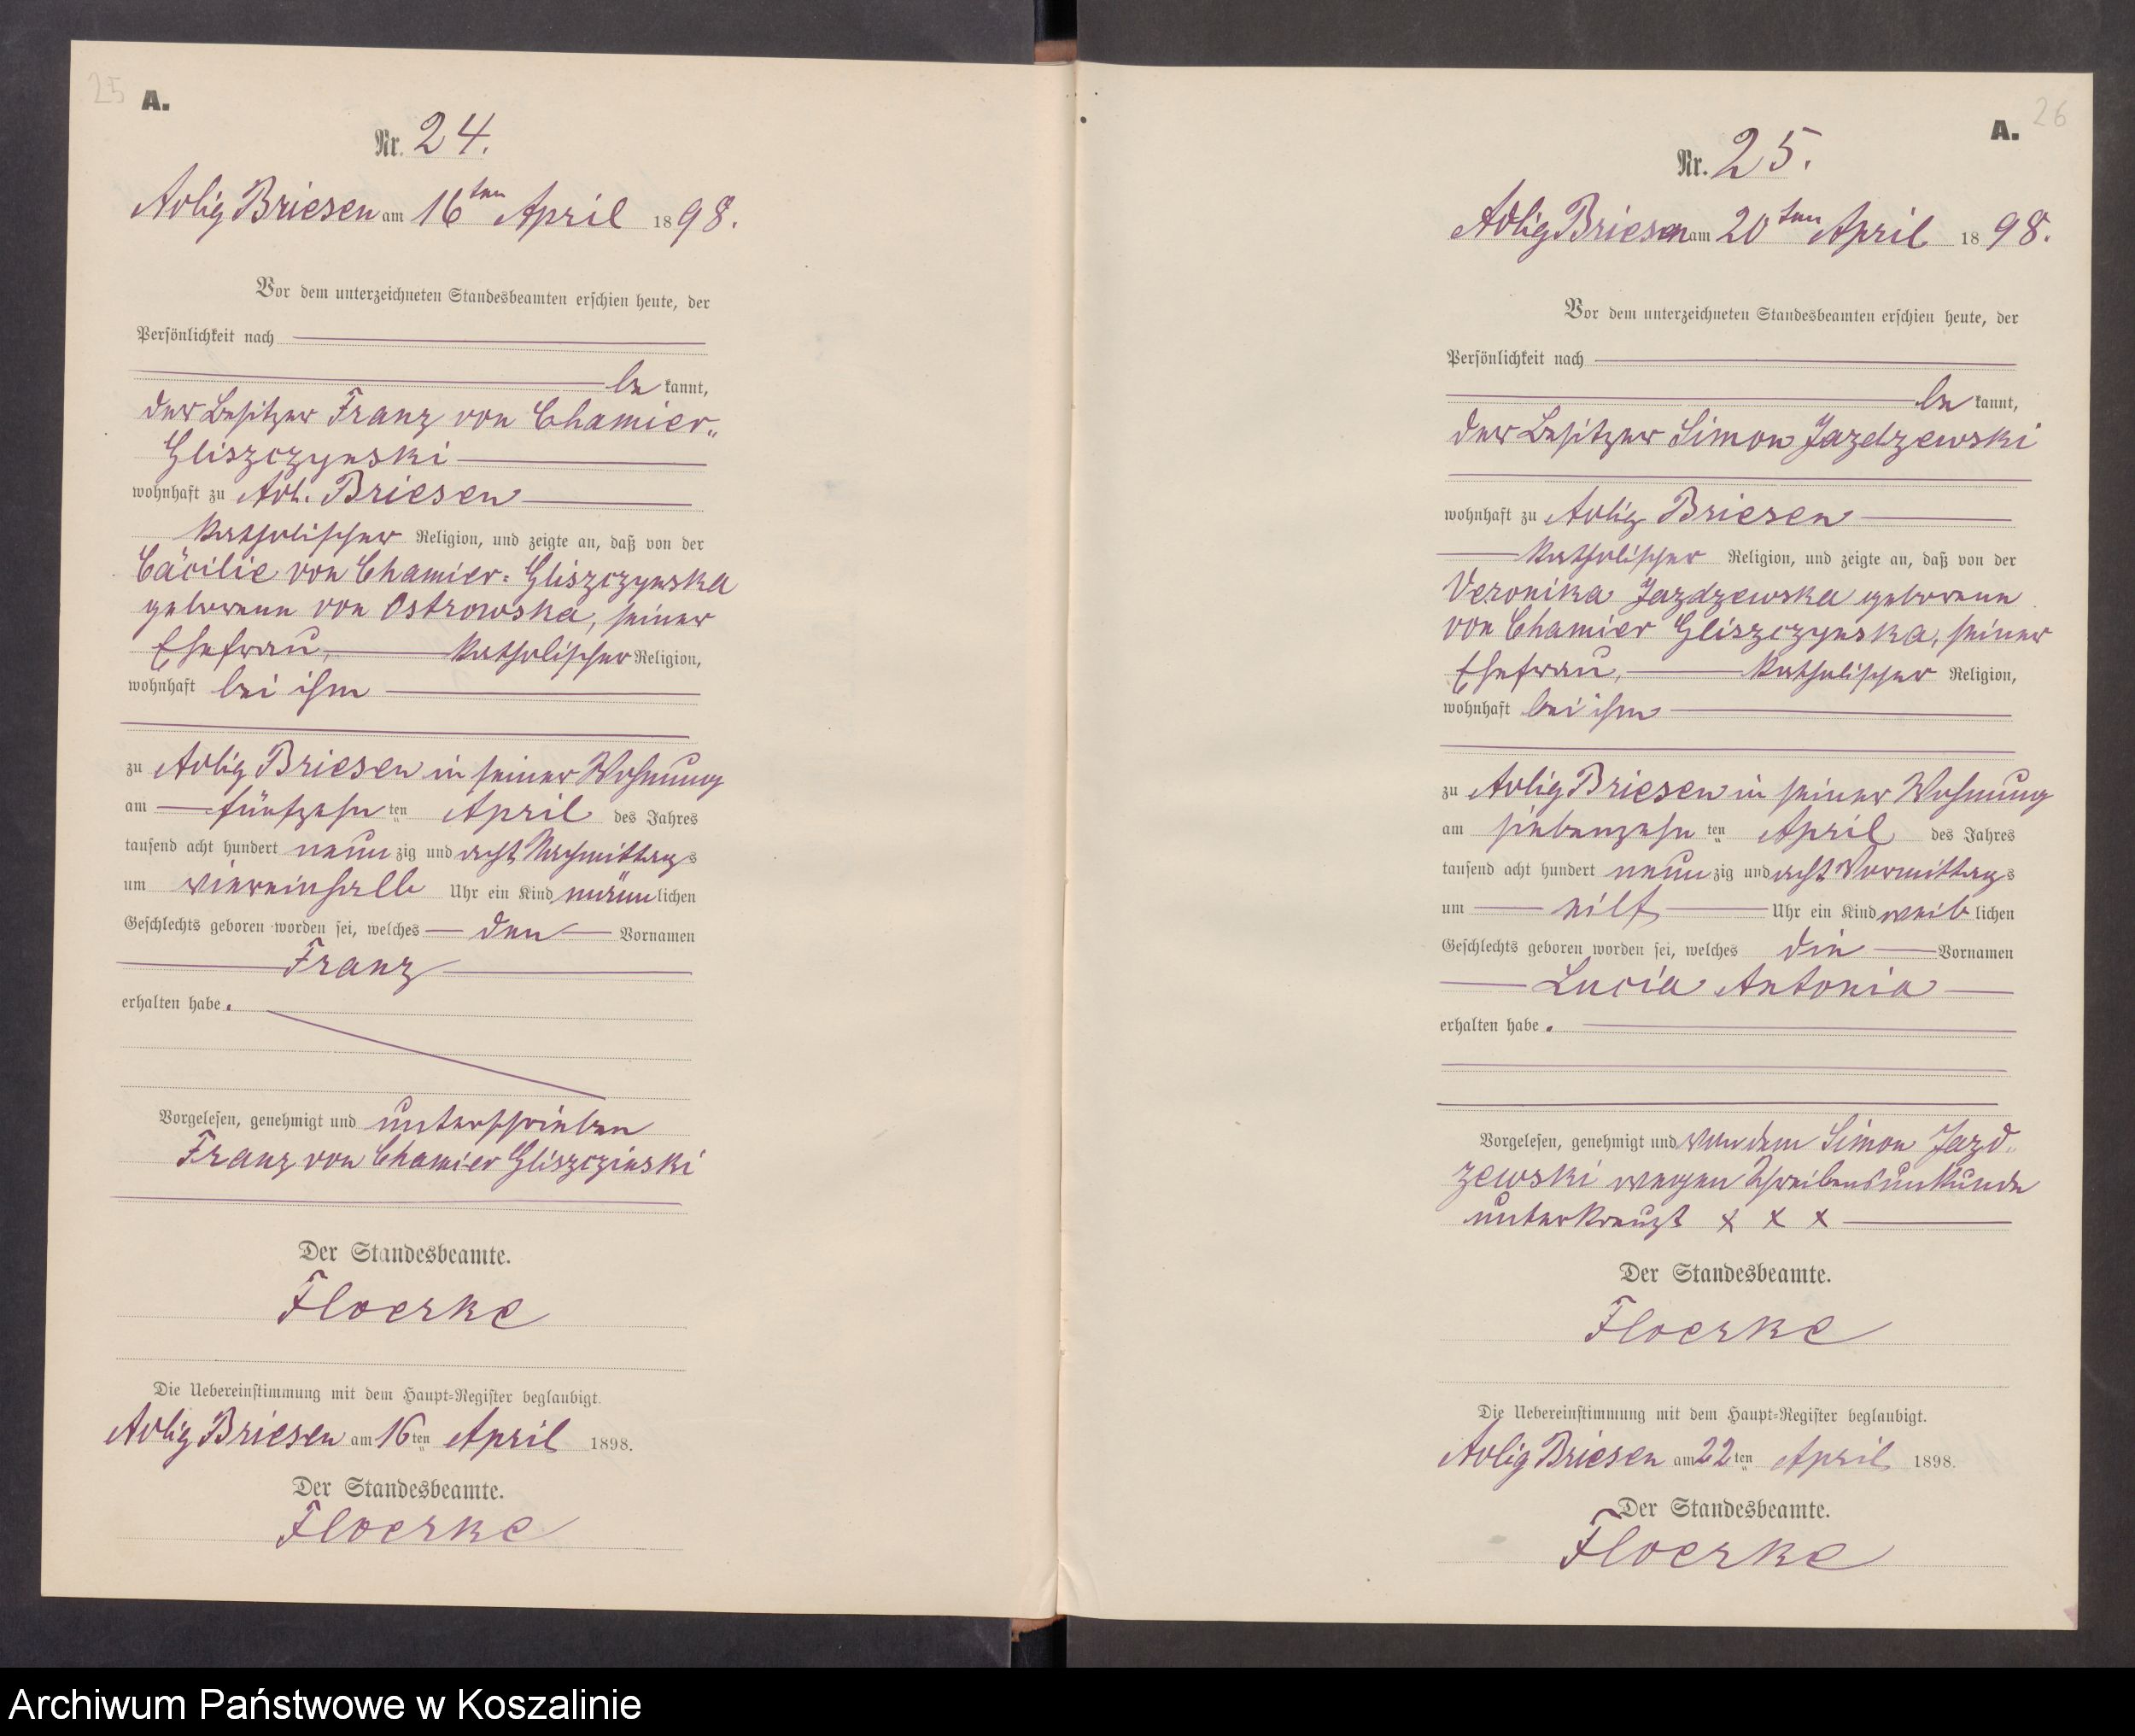 25
A.
Nr. 24.
Adlig Briesen am 16ten April 1898.
Vor dem unterzeichneten Standesbeamten erschien heute, der
Persönlichkeit nach
be kannt,
der Besitzer Franz von Chamier-
Gliszczynski
wohnhaft zu Adl. Briesen
katholischer Religion, und zeigte an, daß von der
Cäcilie von Chamier-Gliszczynska
geborenen von Ostrowska, seiner
Ehefrau, katholischer Religion,
wohnhaft bei ihm
zu Adlig Briesen in seiner Wohnung
am fünfzehn ten April des Jahres
tausend acht hundert neun zig und acht Nachmittags
um viereinhalb Uhr ein Kind männlichen
Geschlechts geboren worden sei, welches den Vornamen
Franz
erhalten habe.
Vorgelesen, genehmigt und unterschrieben
Franz von Chamier Gliszczinski
Der Standesbeamte.
Floerke
Die Uebereinstimmung mit dem Haupt-Register beglaubigt.
Adlig Briesen am 16ten April 1898.
Der Standesbeamte.
Floerke
26
A.
Nr. 25.
Adlig Briesen am 20ten April 1898.
Vor dem unterzeichneten Standesbeamten erschien heute, der
Persönlichkeit nach
be kannt,
der Besitzer Simon Jazdzewski
wohnhaft zu Adlig Briesen
katholischer Religion, und zeigte an, daß von der
Veronika Jazdzewska geborenen
von Chamier Gliszczynska, seiner
Ehefrau, katholischer Religion,
wohnhaft bei ihm
zu Adlig Briesen in seiner Wohnung
am siebenzehn ten April des Jahres
tausend acht hundert neun zig und acht Vormittags
um eilf Uhr ein Kind weiblichen
Geschlechts geboren worden sei, welches die Vornamen
Lucia Antonia
erhalten habe.
Vorgelesen, genehmigt und von dem Simon Jazd-
zewski wegen Schreibensunkunde
unterkreuzt x x x
Der Standesbeamte.
Floerke
Die Uebereinstimmung mit dem Haupt-Register beglaubigt.
Adlig Briesen am 22ten April 1898.
Der Standesbeamte.
Floerke
Archiwum Państwowe w Koszalinie